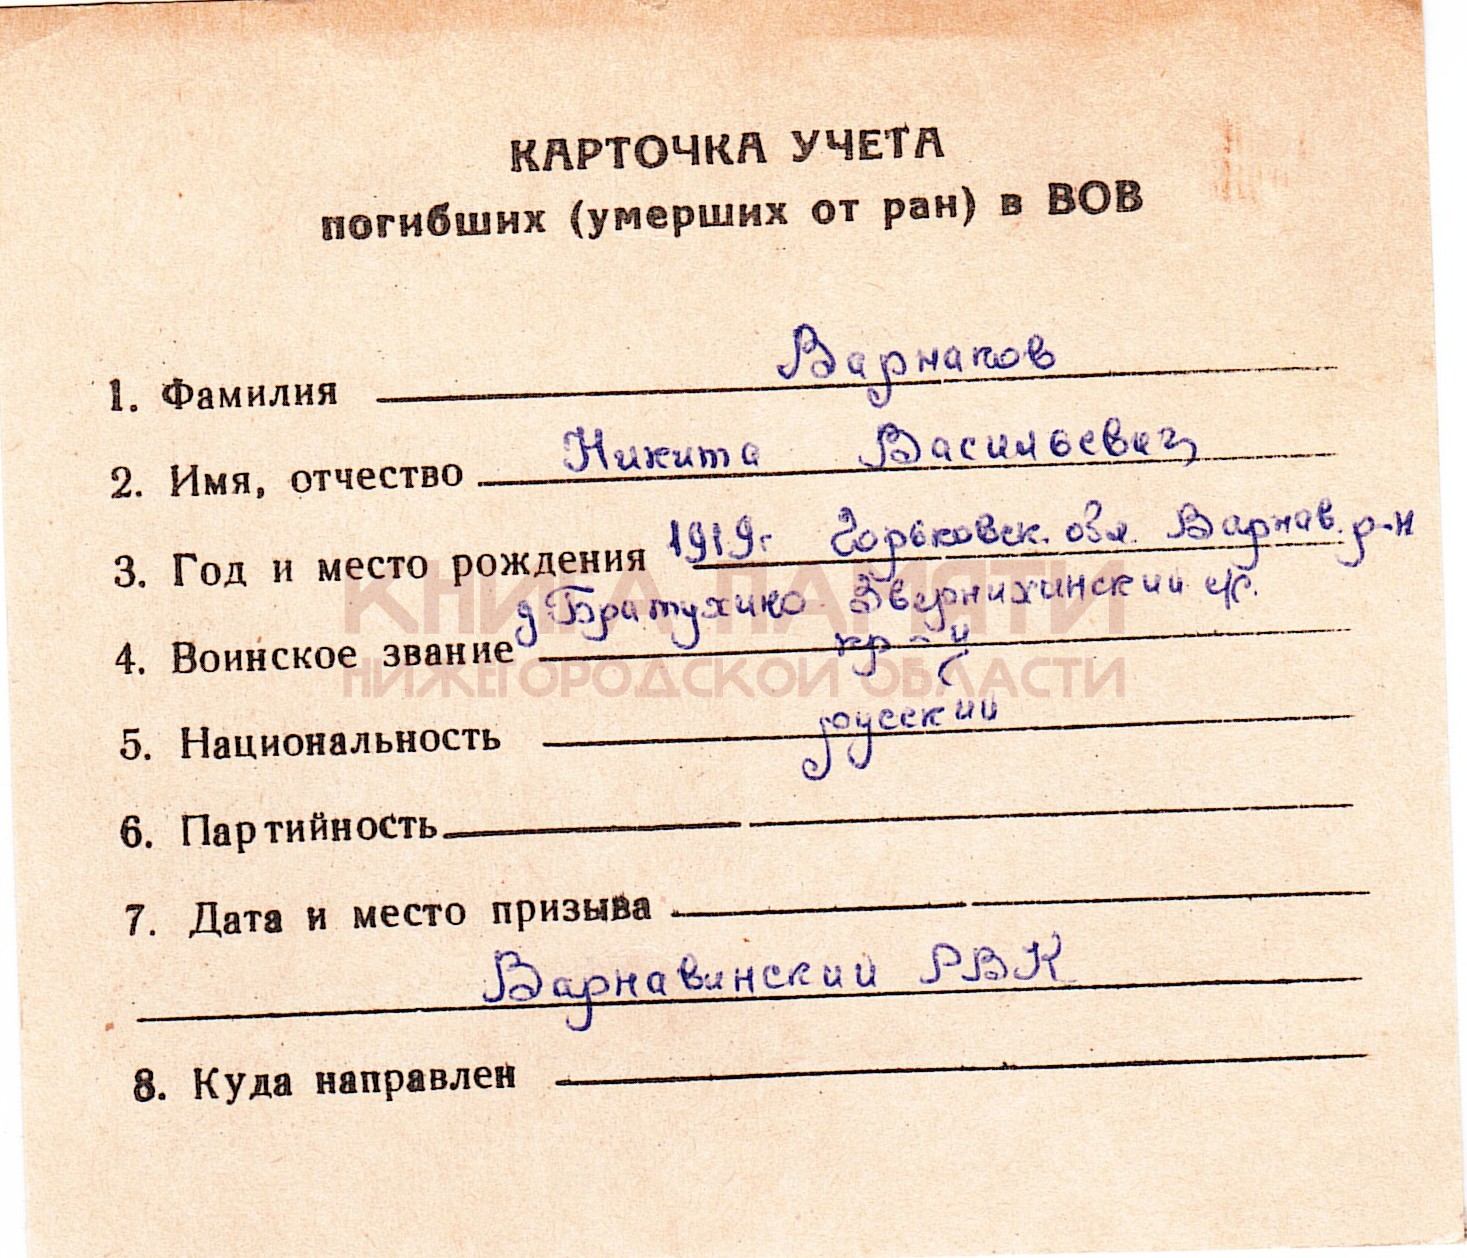 КАРТОЧКА УЧЕТА
погибших (умерших от ран) в ВОВ
1. Фамилия Варнаков
2. Имя, отчество Никита Васильевич
3. Год и место рождения 1919г Горьковск. обл. Варнав. р-н
д. Братухино Звернихинский с/с.
4. Воинское звание кр-й
5. Национальность русский
6. Партийность
7. Дата и место призыва
Варнавинский РВК
8. Куда направлен
КНИГА ПАМЯТИ
НИЖЕГОРОДСКОЙ ОБЛАСТИ